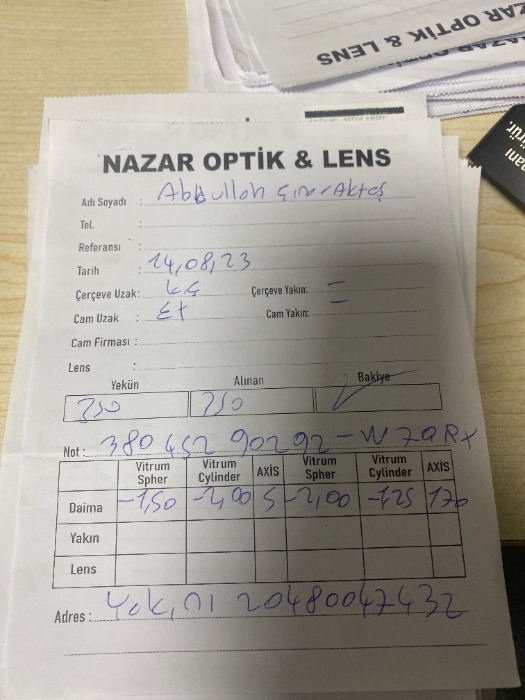 ZAR OPTİK & LENS
NAZAR OPTİK & LENS
Adı Soyadı : Abdullah Çınar Aktaş
Tel. :
Referansı :
Tarih : 14,08,23
Çerçeve Uzak: KÇ Çerçeve Yakın: =
Cam Uzak : Cam Yakın:
Cam Firması :
Lens :
Yekün Alınan Bakiye
750 750
Not : 380452 90292-W7QRX
Vitrum Spher Vitrum Cylinder AXİS Vitrum Spher Vitrum Cylinder AXİS
Daima -1,50 -2,00 5 -2,00 -1,25 170
Yakın
Lens
Adres : 20480047432